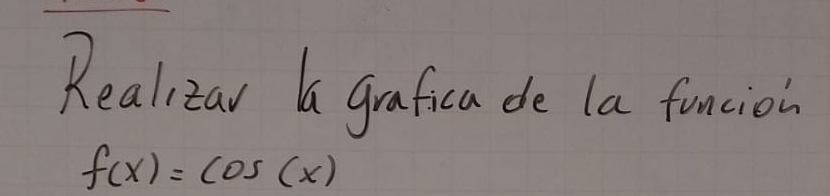 Realizar la grafica de la función
f(x) = cos (x)